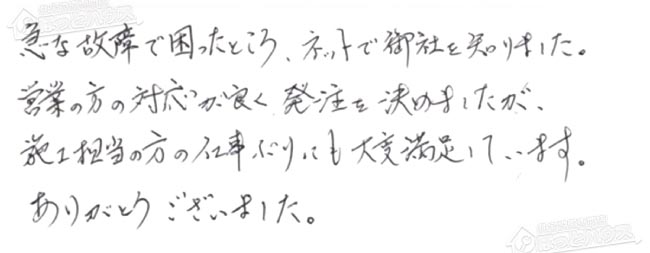 急な故障で困ったところ、ネットで御社を知りました。
営業の方の対応が良く発注を決めましたが、
施工担当の方の仕事ぶりにも大変満足しています。
ありがとうございました。